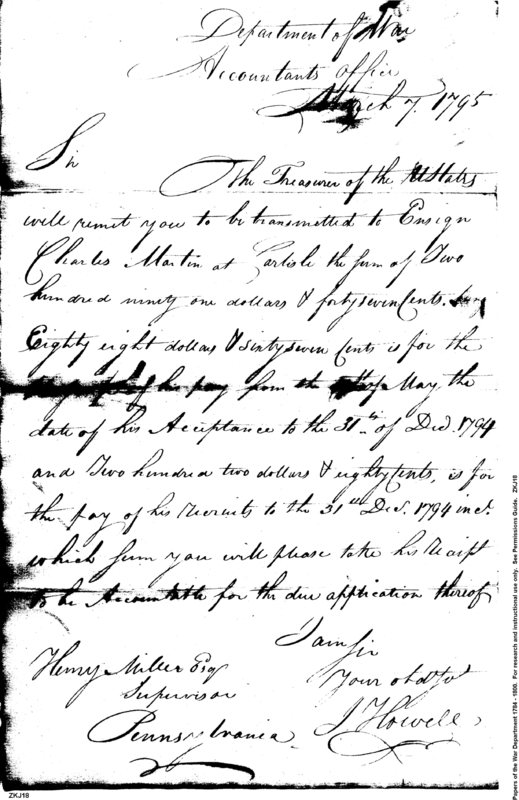 Department of War
Accountants office
March 7. 1795
Sir
The Treasurer of the UStates
will remit you to be transmitted to Ensign
Charles Martin at Carlisle the sum of Two
hundred ninety one dollars & forty seven Cents.
Eighty eight dollars & sixty seven Cents is for the
of his pay from the of May the
date of his Acceptance to the 31th of Decr. 1794
and Two hundred two dollars & eighty Cents, is for
the pay of his recruits to the 31th Decr. 1794 incl.
which sum you will please take his receipt
to be Accountable for the due application thereof
I am Sir
Your obd sVt
J Howell
Henry Miller Esq
Supervisor
Pennsylvania
ZKJ18
Papers of the War Department 1784 - 1800. For research and instructional use only. See Permissions Guide. ZKJ18